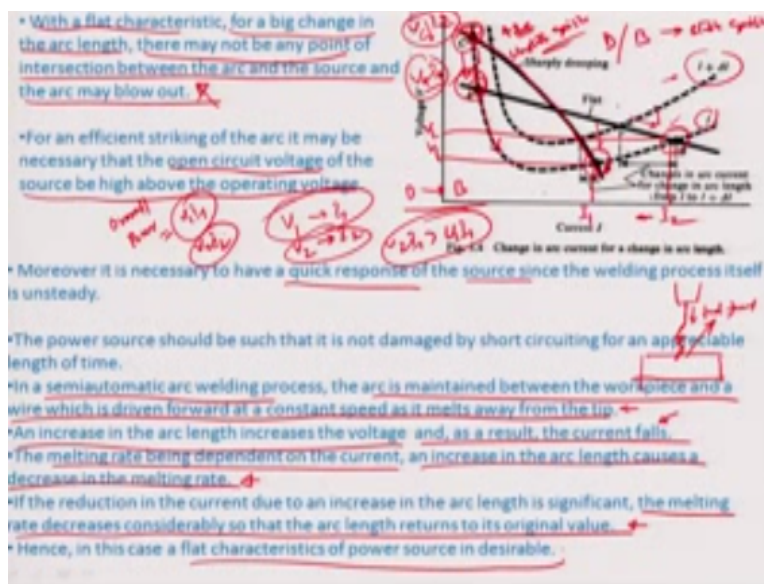 •With a flat characteristic, for a big change in
the arc length, there may not be any point of
intersection between the arc and the source and
the arc may blow out.
•For an efficient striking of the arc it may be
necessary that the open circuit voltage of the
source be high above the operating voltage
Sharply drooping
Flat
l + dl
l
Changes in arc current
for change in arc length
from l to l + dl
Current I
I1
I2
Change in arc current for a change in arc length.
Overall
Power =
V1I1
V2I2
V1 → I1
V2 → I2
• Moreover it is necessary to have a quick response of the source since the welding process itself
is unsteady.
•The power source should be such that it is not damaged by short circuiting for an appreciable
length of time.
•In a semiautomatic arc welding process, the arc is maintained between the workpiece and a
wire which is driven forward at a constant speed as it melts away from the tip.
•An increase in the arc length increases the voltage and, as a result, the current falls.
•The melting rate being dependent on the current, an increase in the arc length causes a
decrease in the melting rate.
•If the reduction in the current due to an increase in the arc length is significant, the melting
rate decreases considerably so that the arc length returns to its original value.
• Hence, in this case a flat characteristics of power source in desirable.